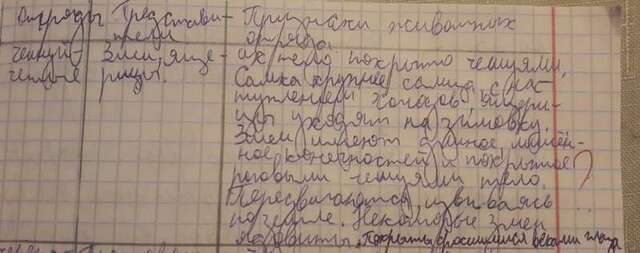 Отряды Представи- Признаки животных
тели отряда
чешуй- Змеи, яще- их тело покрыто чешуями,
чатые рицы. Самка крупнее самца, с нас
туплением холодов, ящери-
цы уходят на зимовку.
Змеи имеют длинное, лишён-
ное конечностей и покрытое ?
роговыми чешуями тело.
Передвигаются, извиваясь
по земле. Некоторые змеи
ядовиты, покрыты сросшимися веками глаза